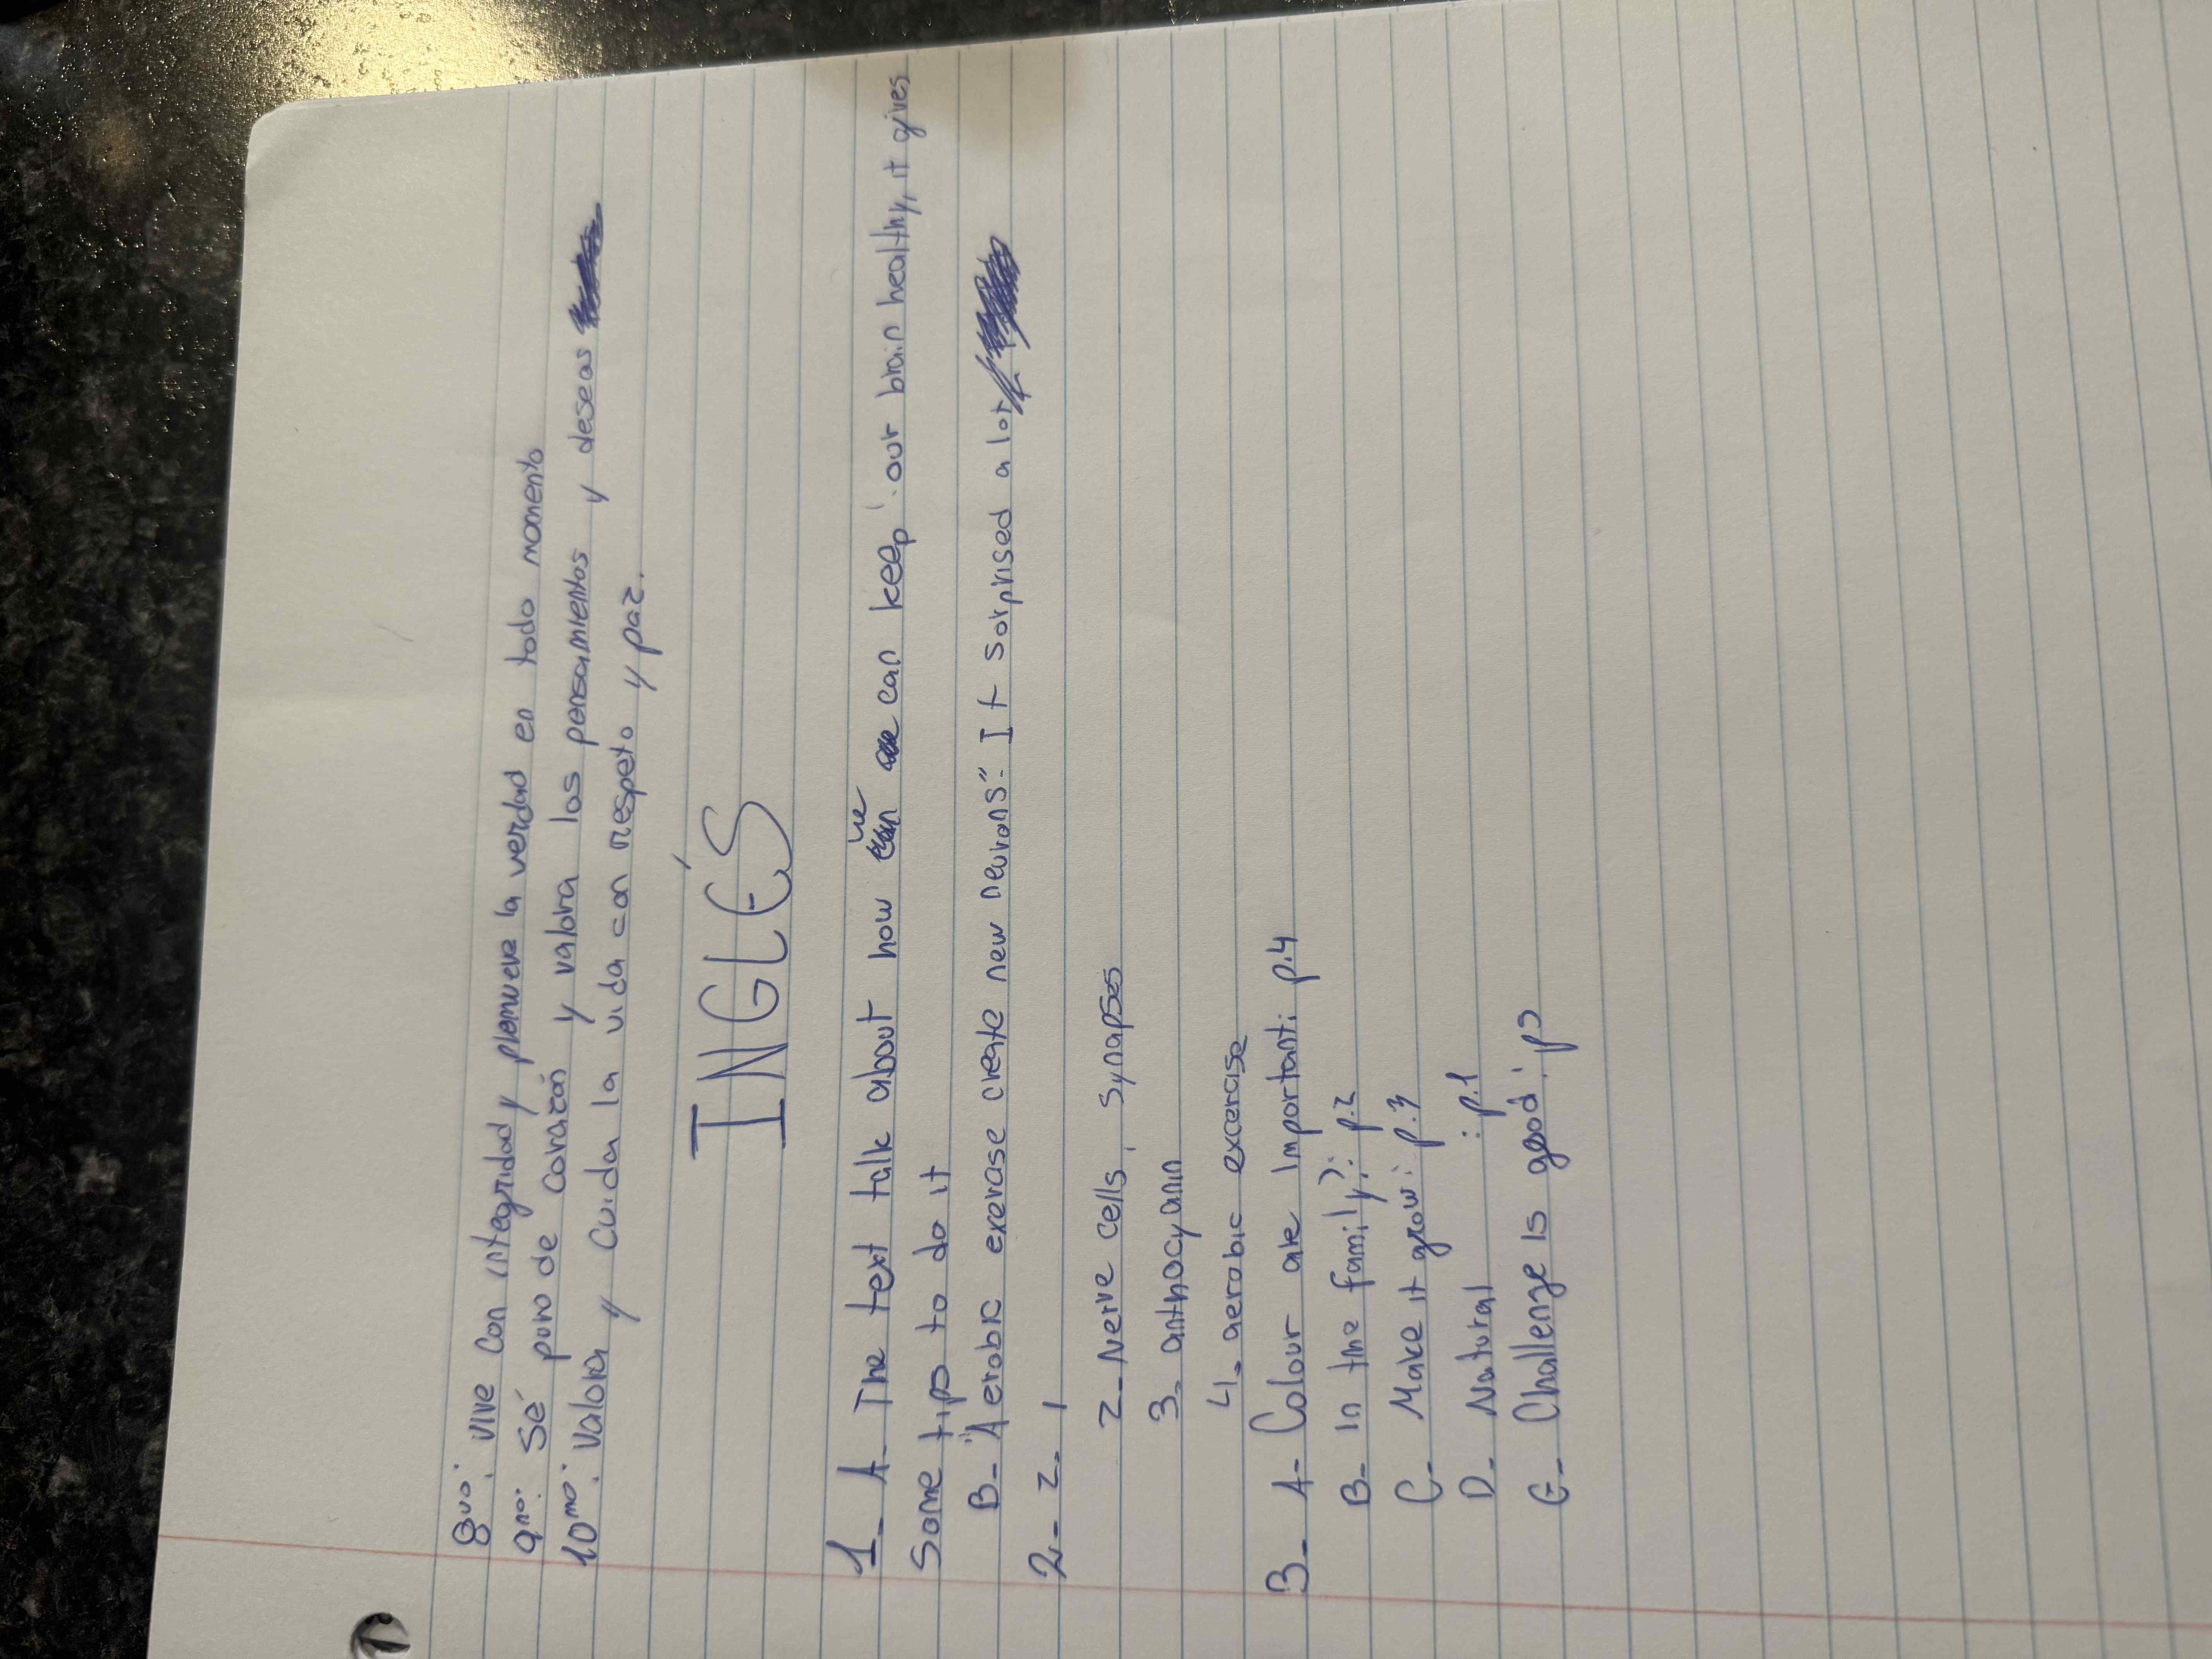 8vo: vive con integridad y plomueve la verdad en todo momento
9no: Sé puro de corazón y valora los pensamientos y deseos
10mo: Valora y cuida la vida con respeto y paz.
INGLÉS
1_ A_ The text talk about how we can keep our brain healthy, it gives
Some tips to do it
B_ "Aerobic exercise create new neurons". It sorprised a lot
2_ 2_ 1
2_ Nerve cells, synapses
3_ anthocyanin
4_ aerobic excercise
3_ A_ Colour are important: p.4
B_ In the family?: p.2
C_ Make it grow: p.3
D_ Natural : p.1
E_ Challenge is good: p5